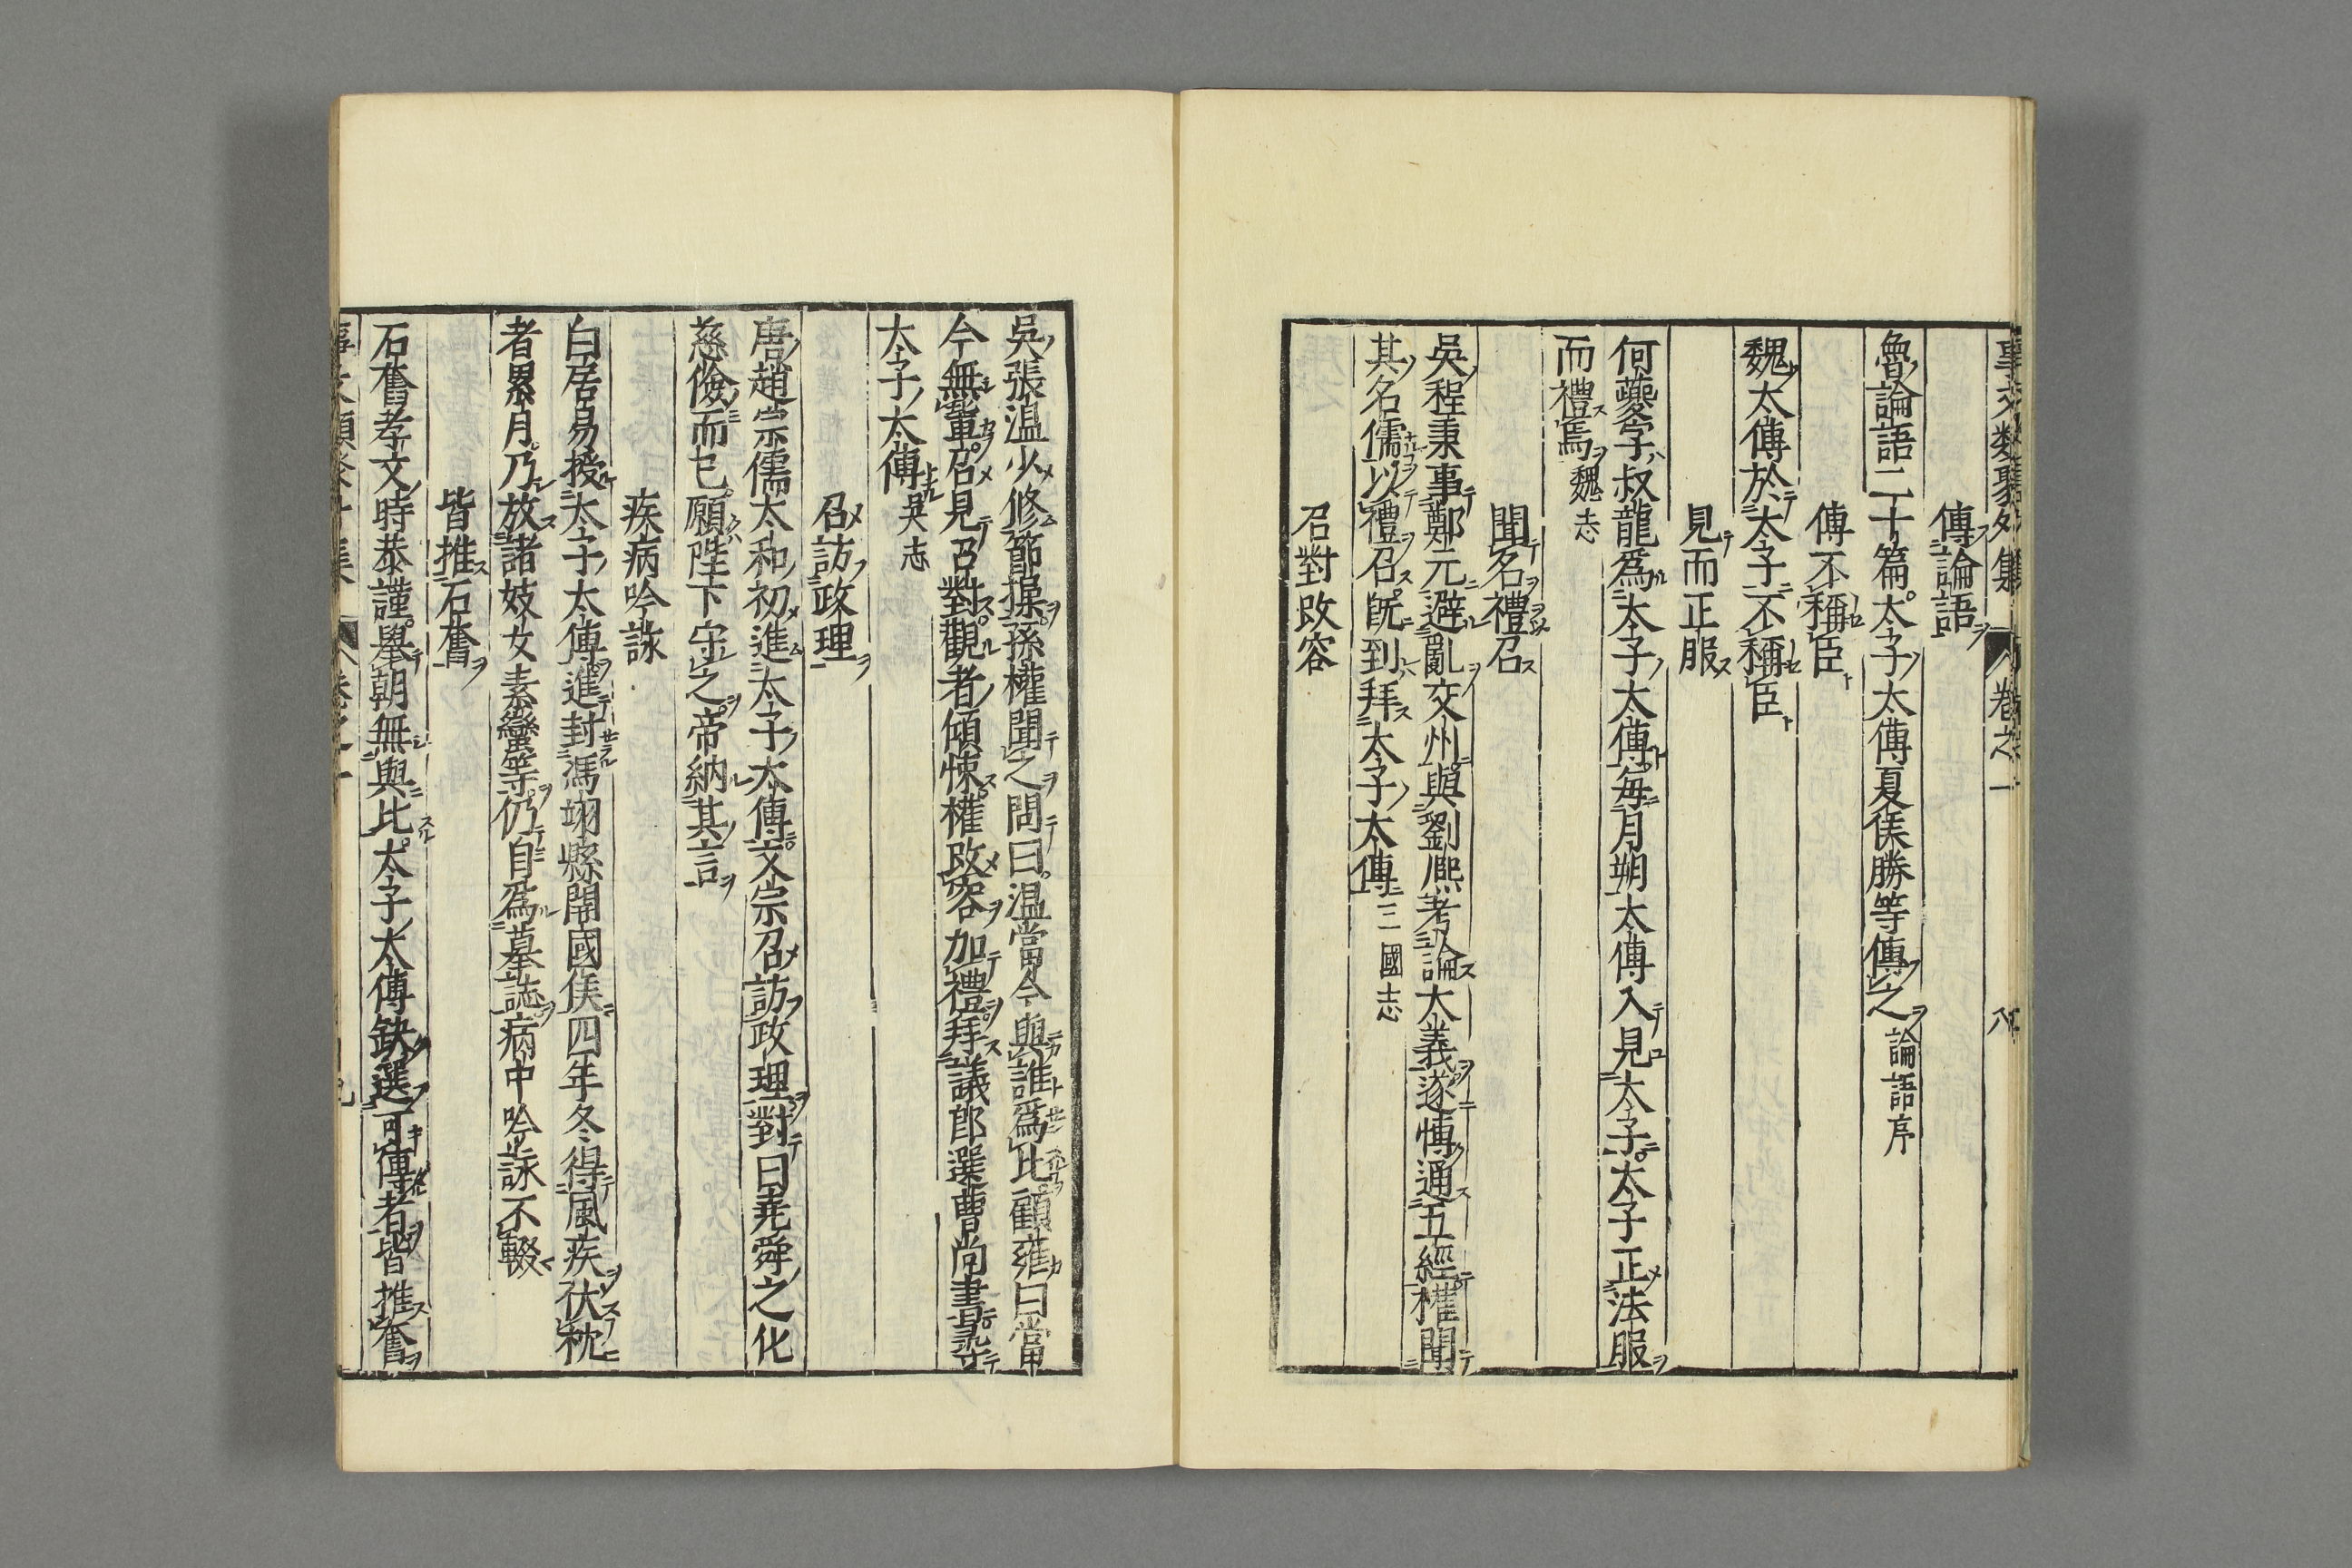 事文類聚外集 卷之一 八
傳論語
魯論語二十篇太子太傅夏侯勝等傳之論語序
傅不稱臣
魏太傅於太子不稱臣
見而正服
何夔字叔龍爲太子太傅每月朔太傅入見太子太子正法服
而禮焉魏志
聞名禮召
吳程秉事鄭元避亂交州與劉熈考論大義遂愽通五經權聞
其名儒以禮召旣到拜太子太傅三國志
召對改容
吳張温少修節操孫權聞之問曰温當今與誰爲比顧雍曰當
今無軰召見召對觀者傾悚權改容加禮拜議郎選曹尚書
太子太傅吳志
召訪政理
唐趙宗儒太和初進太子太傅文宗召訪政理對曰堯舜之化
慈儉而已願陛下守之帝納其言
疾病吟詠
白居易授太子太傅進封馮翊縣開國侯四年冬得風疾伏枕
者累月乃放諸妓女素蠻等仍自爲墓誌病中吟詠不輟
皆推石奮
石奮孝文時恭謹舉朝無與比太子太傅缺選可傅者皆推奮